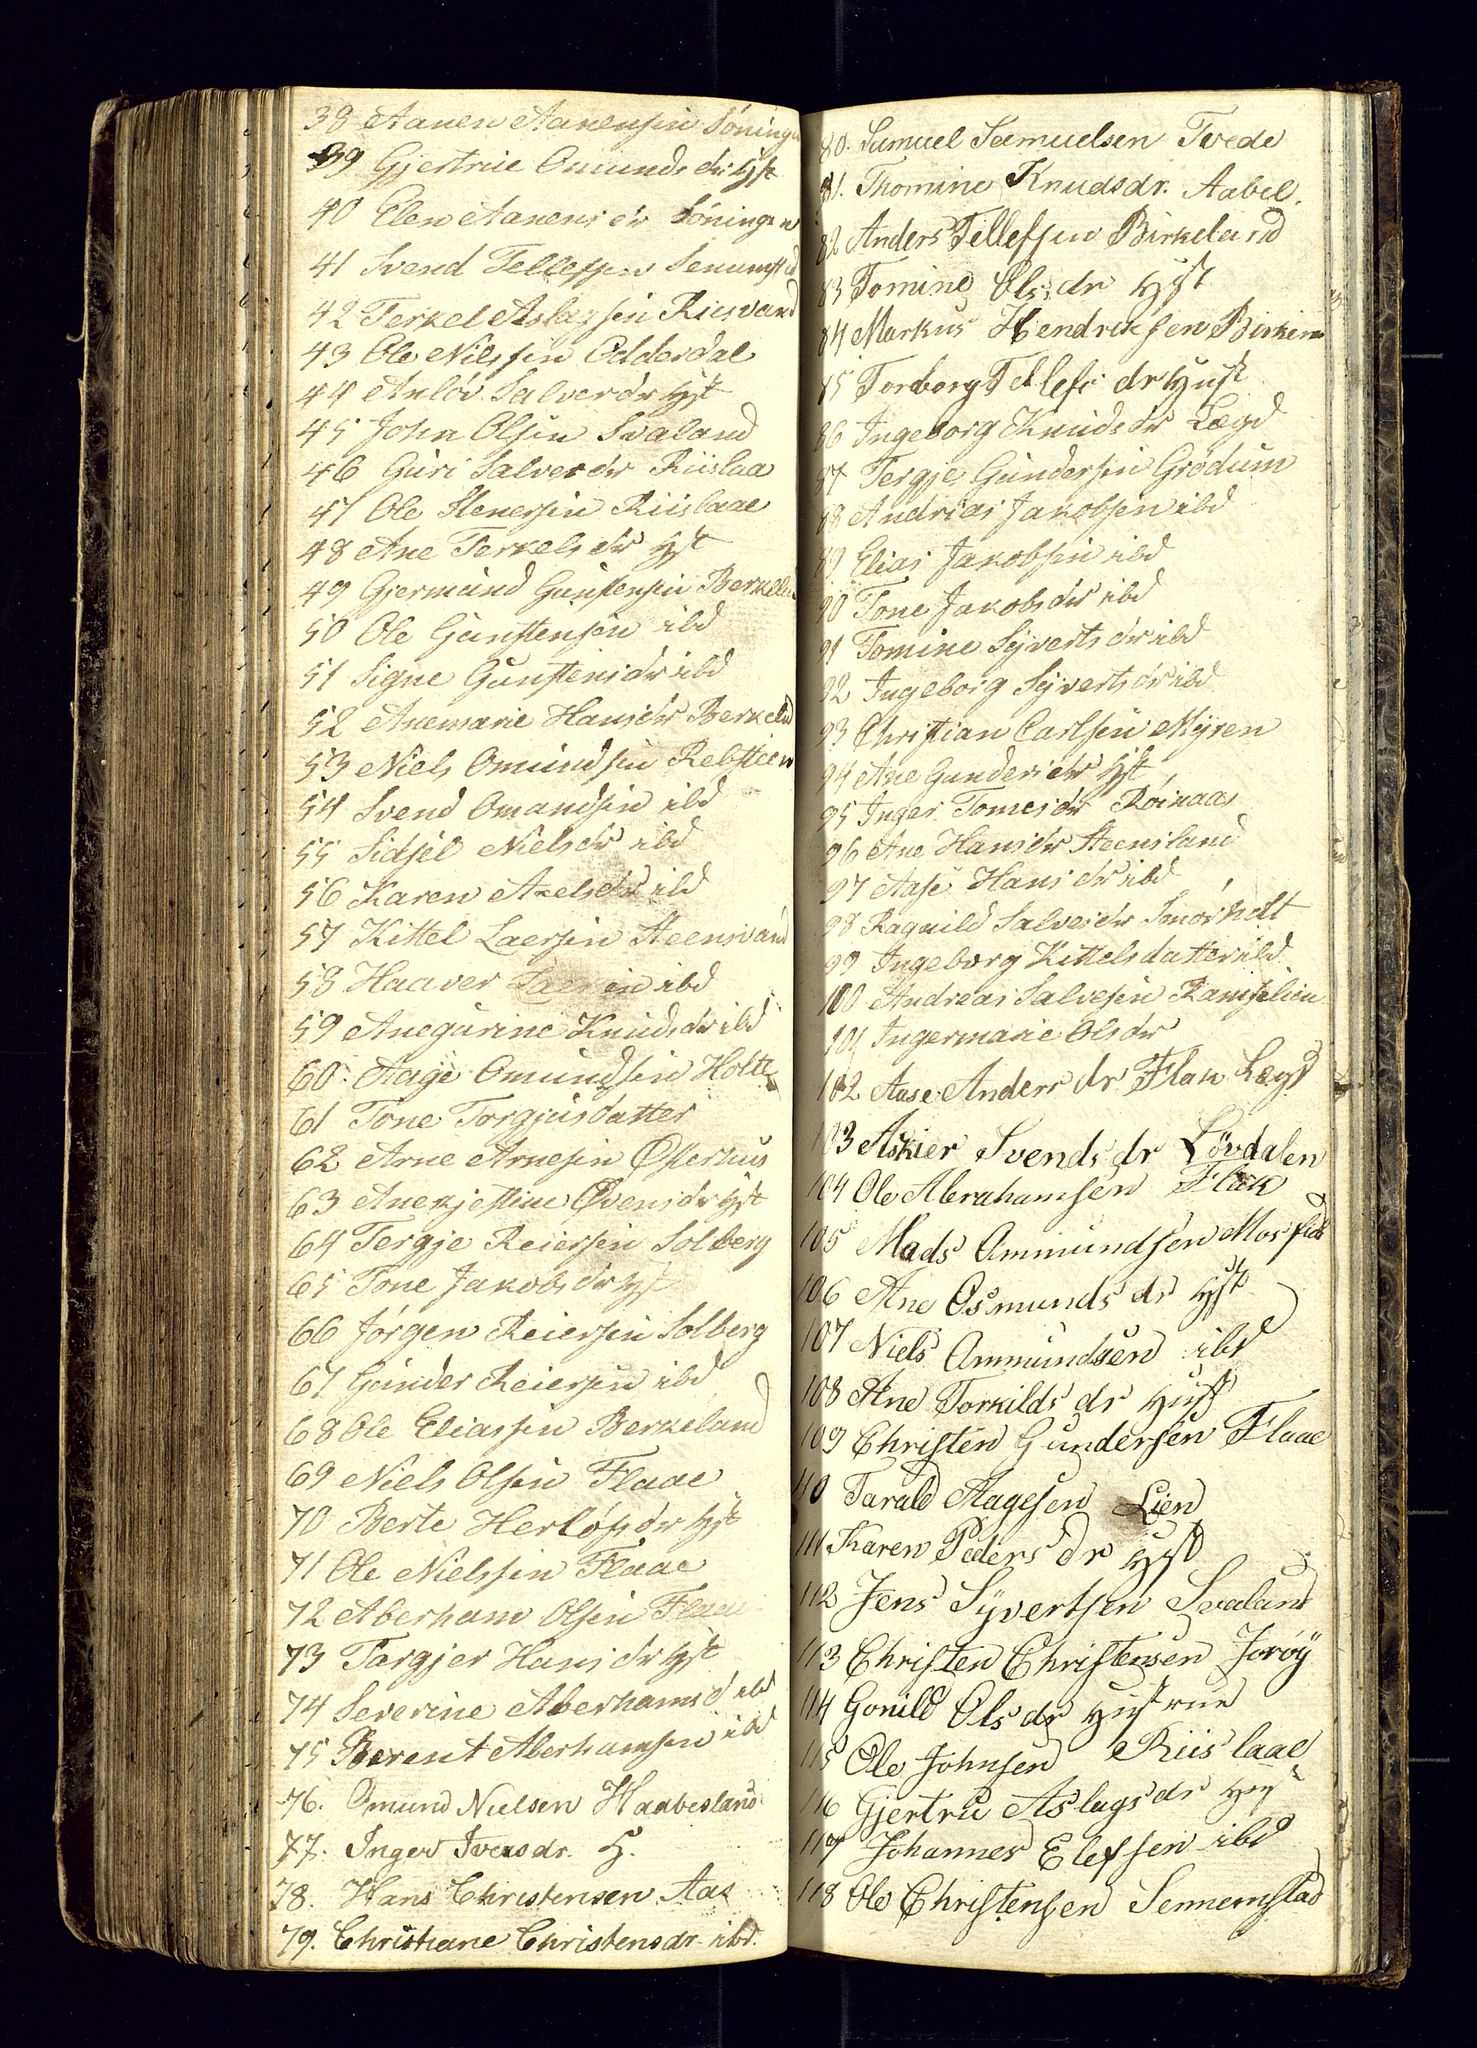 38 Aanen Aanensen Söningen
39 Gjertrue Omundsdr Hst
40 Elen Aanensdr Söningen
41 Svend Tellefsen Senumstad
42 Terkel Aslagsen Riisvand
43 Ole Nilssen Odderdal
44 Anlöv Salvesdr Hst
45 John Olsen Svaland
46 Guri Salvesdr Riislaa
47 Ole Stenersen Riislaae
48 Ane Terkelsdr Hst
49 Gjermund Gunstensen Berkeland
50 Ole Gunstensen ibd
51 Signe Gunstensdr ibd
52 Anemarie Hansdr Berkeland
53 Niels Omundsen Rebsteen
54 Svend Omundsen ibd
55 Sidsel Nielsdr ibd
56 Karen Axelsdr ibd
57 Kittel Laersen Steensvand
58 Haaver Laersen ibd
59 Anegurine Knudsdr ibd
60. Aage Omundsen Holte
61 Tone Torgjusdatter
62 Arne Arnesen Østerhus
63 Anekjestine Øvensdr Hst
64 Tergje Reiersen Solberg
65 Tone Jakobsdr Hst
66 Jørgen Reiersen Solberg
67 Gunder Reiersen ibd
68 Ole Eliassen Berkeland
69 Niels Olsen Flaae
70 Berte Herlöfsdr Hst
71 Ole Nielssen Flaae
72 Aberham Olsen Flaae
73 Targjer Hansdr Hst
74 Severine Aberhamsd ibd
75 Berent Aberhamsen ibd
76. Omund Nielsen Haabesland
77. Inger Iversdr. H.
78. Hans Christensen Aas
79. Christiane Christensdr. ibd.
80. Samuel Samuelsen Tvede
81. Thomine Knudsdr. Aabel.
82 Anders Tellefsen Birkeland
83 Tomine Olsdr Hst
84 Markus Hendriksen Birkenes
85 Torborg Tellefsdr Hust
86 Ingeborg Knudsdr Lægd
87 Tergje Gundersen Grödum
88 Andrias Jakobsen ibd
89 Elias Jakobsen ibd
90 Tone Jakobsdr ibd
91 Tomine Syvertsdr ibd
92 Ingeborg Syvertsdr ibd
93 Christian Carlsen Myren
94 Ane Gundersdr Hst
95 Inger Tomesdr Röinaas
96 Ane Hansdr Steensland
97 Aase Hansdr ibd
98 Raguild Salvesdr Smörholt
99 Ingeborg Kittelsdatter ibd
100 Andreas Salvesen Ramselien
101 Ingermarie Olsdr
102 Aase Andersdr Flak Lægd
103 Askier Svendsdr Lövdalen
104 Ole Abrahamsen Flak
105 Mads Ammundsen
106 Ane Osmundsdr Hst
107 Niels Ammundsen ibd
108 Ane Torkildsdr Hust
109 Christen Gundersen Flaae
110 Tarald Aagesen Lien
111 Karen Pedersdr Hst
112 Jens Syvertsen Svaland
113 Christen Christensen Jorøy
114 Gonild Olsdr Hustrue
115 Ole Johnsen Riislaae
116 Gjertru Aslagsdr Hst
117 Johannes Elefsen ibd
118 Ole Christensen Sennemstad